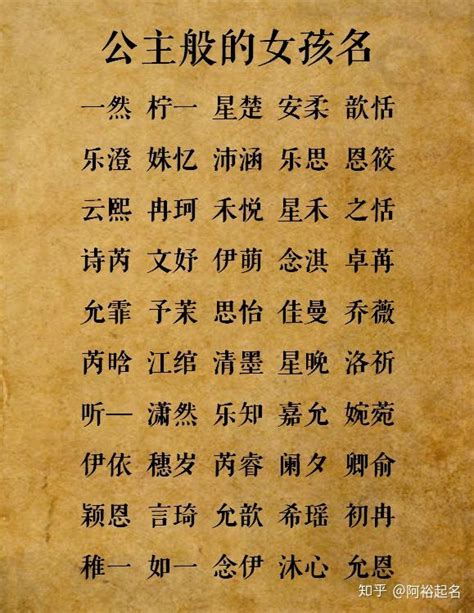 公主般的女孩名
一然 柠一 星楚 安柔 歆恬
乐澄 姝忆 沛涵 乐思 恩筱
云熙 冉珂 禾悦 星禾 之恬
诗芮 文妤 伊萌 念淇 卓苒
允霏 予茉 思怡 佳曼 乔薇
芮晗 江绾 清墨 星晚 洛祈
听一 潇然 乐知 嘉允 婉菀
伊依 穗岁 芮睿 阑夕 卿俞
颖恩 言琦 允歆 希瑶 初冉
稚一 如一 念伊 沐心 允恩
知乎 @阿裕起名